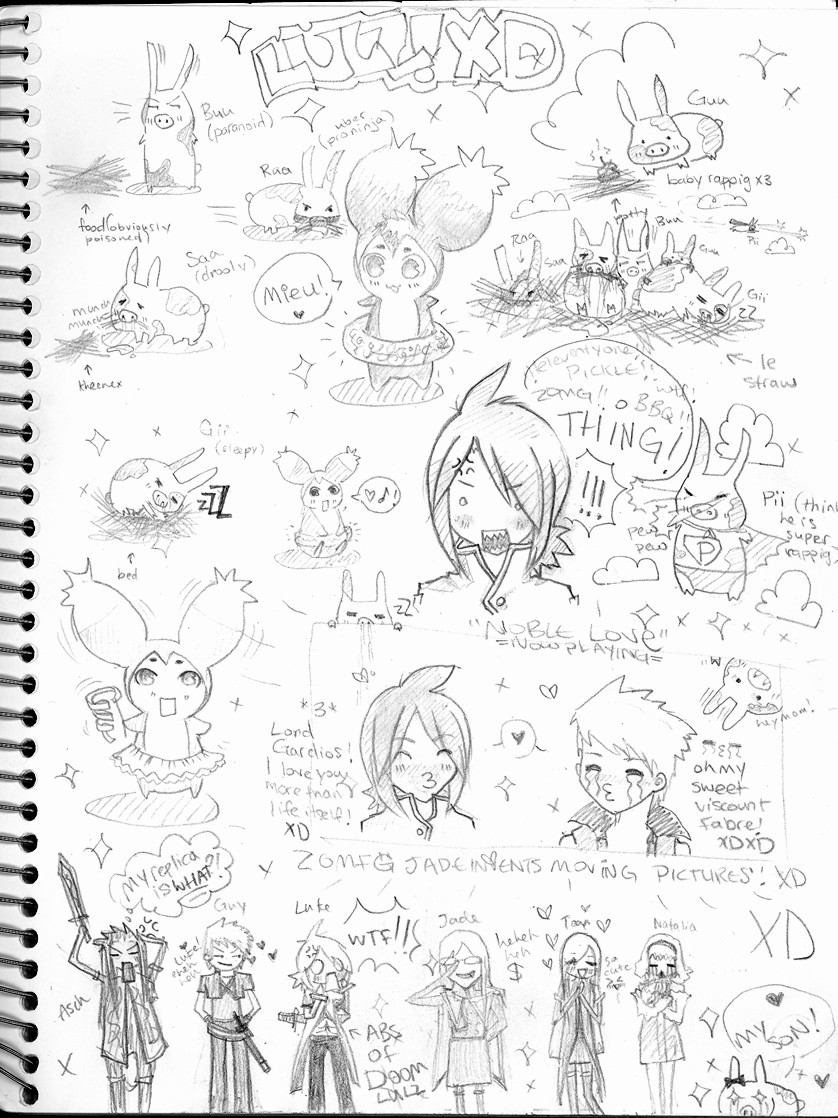 LULZ! XD
Buu
(paranoid)
food (obviously
poisoned)
uber
(pro ninja)
Raa
Guu
baby rappig x3
potty
Saa
(drooly)
munch
munch
kheenex
Mieu!
Raa
Saa
Buu
Guu
Gii
zz
Pii
le
straw
eleventyone!!
PICKLE!
wtf!
ZOMG!! BBQ!!
THING!
!!!
Gii
(sleepy)
zzZ
bed
pew
pew
P
Pii (think
he is
super
rappig
zz
"NOBLE LOVE"
=NOW PLAYING=
*3*
Lord
Gardios!
I love you
more than
life itself!
XD
hey mom!
oh my
sweet
viscount
Fabre!
XDXD
ZOMFG JADE INVENTS MOVING PICTURES! XD
My replica
is WHAT?!
Asch
Guy
Luke
WTF!!
ABS
OF
DOOM
LULZ
Jade
heheh
heh
$
Tear
so
cute
Natalia
XD
MY SON!